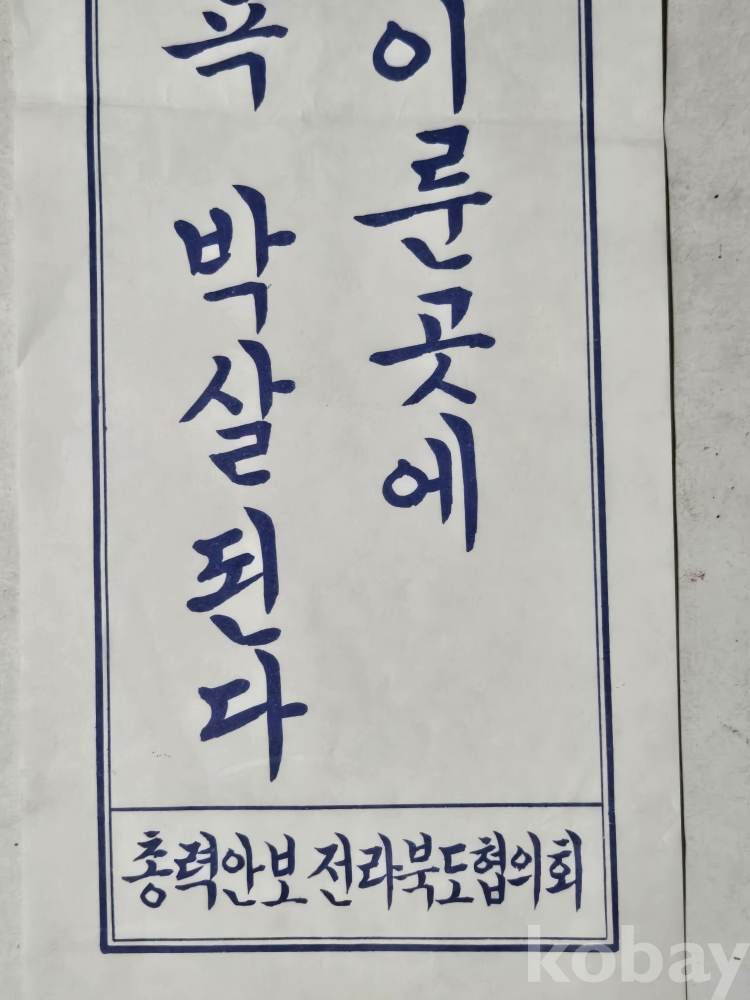 이룬곳에
박살된다
총력안보 전라북도협의회
kobay